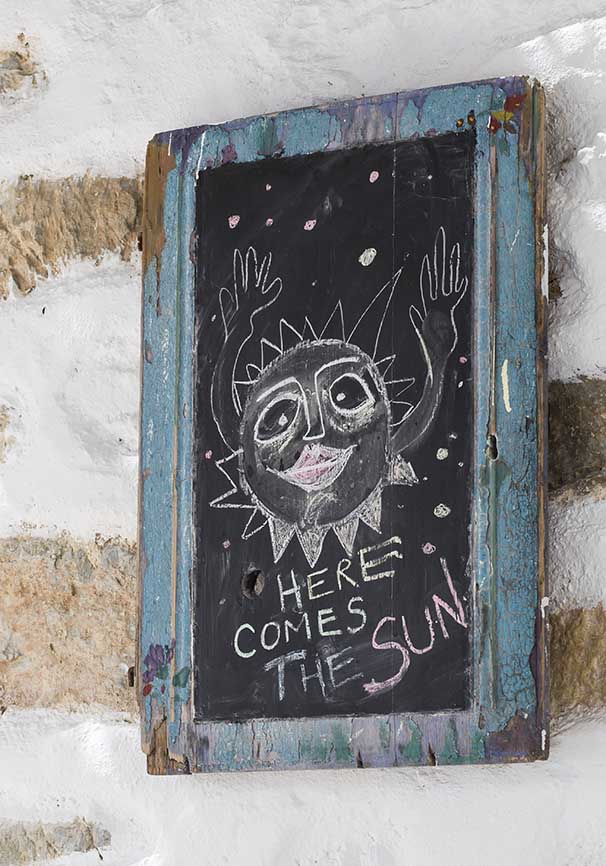 HERE
COMES
THE SUN